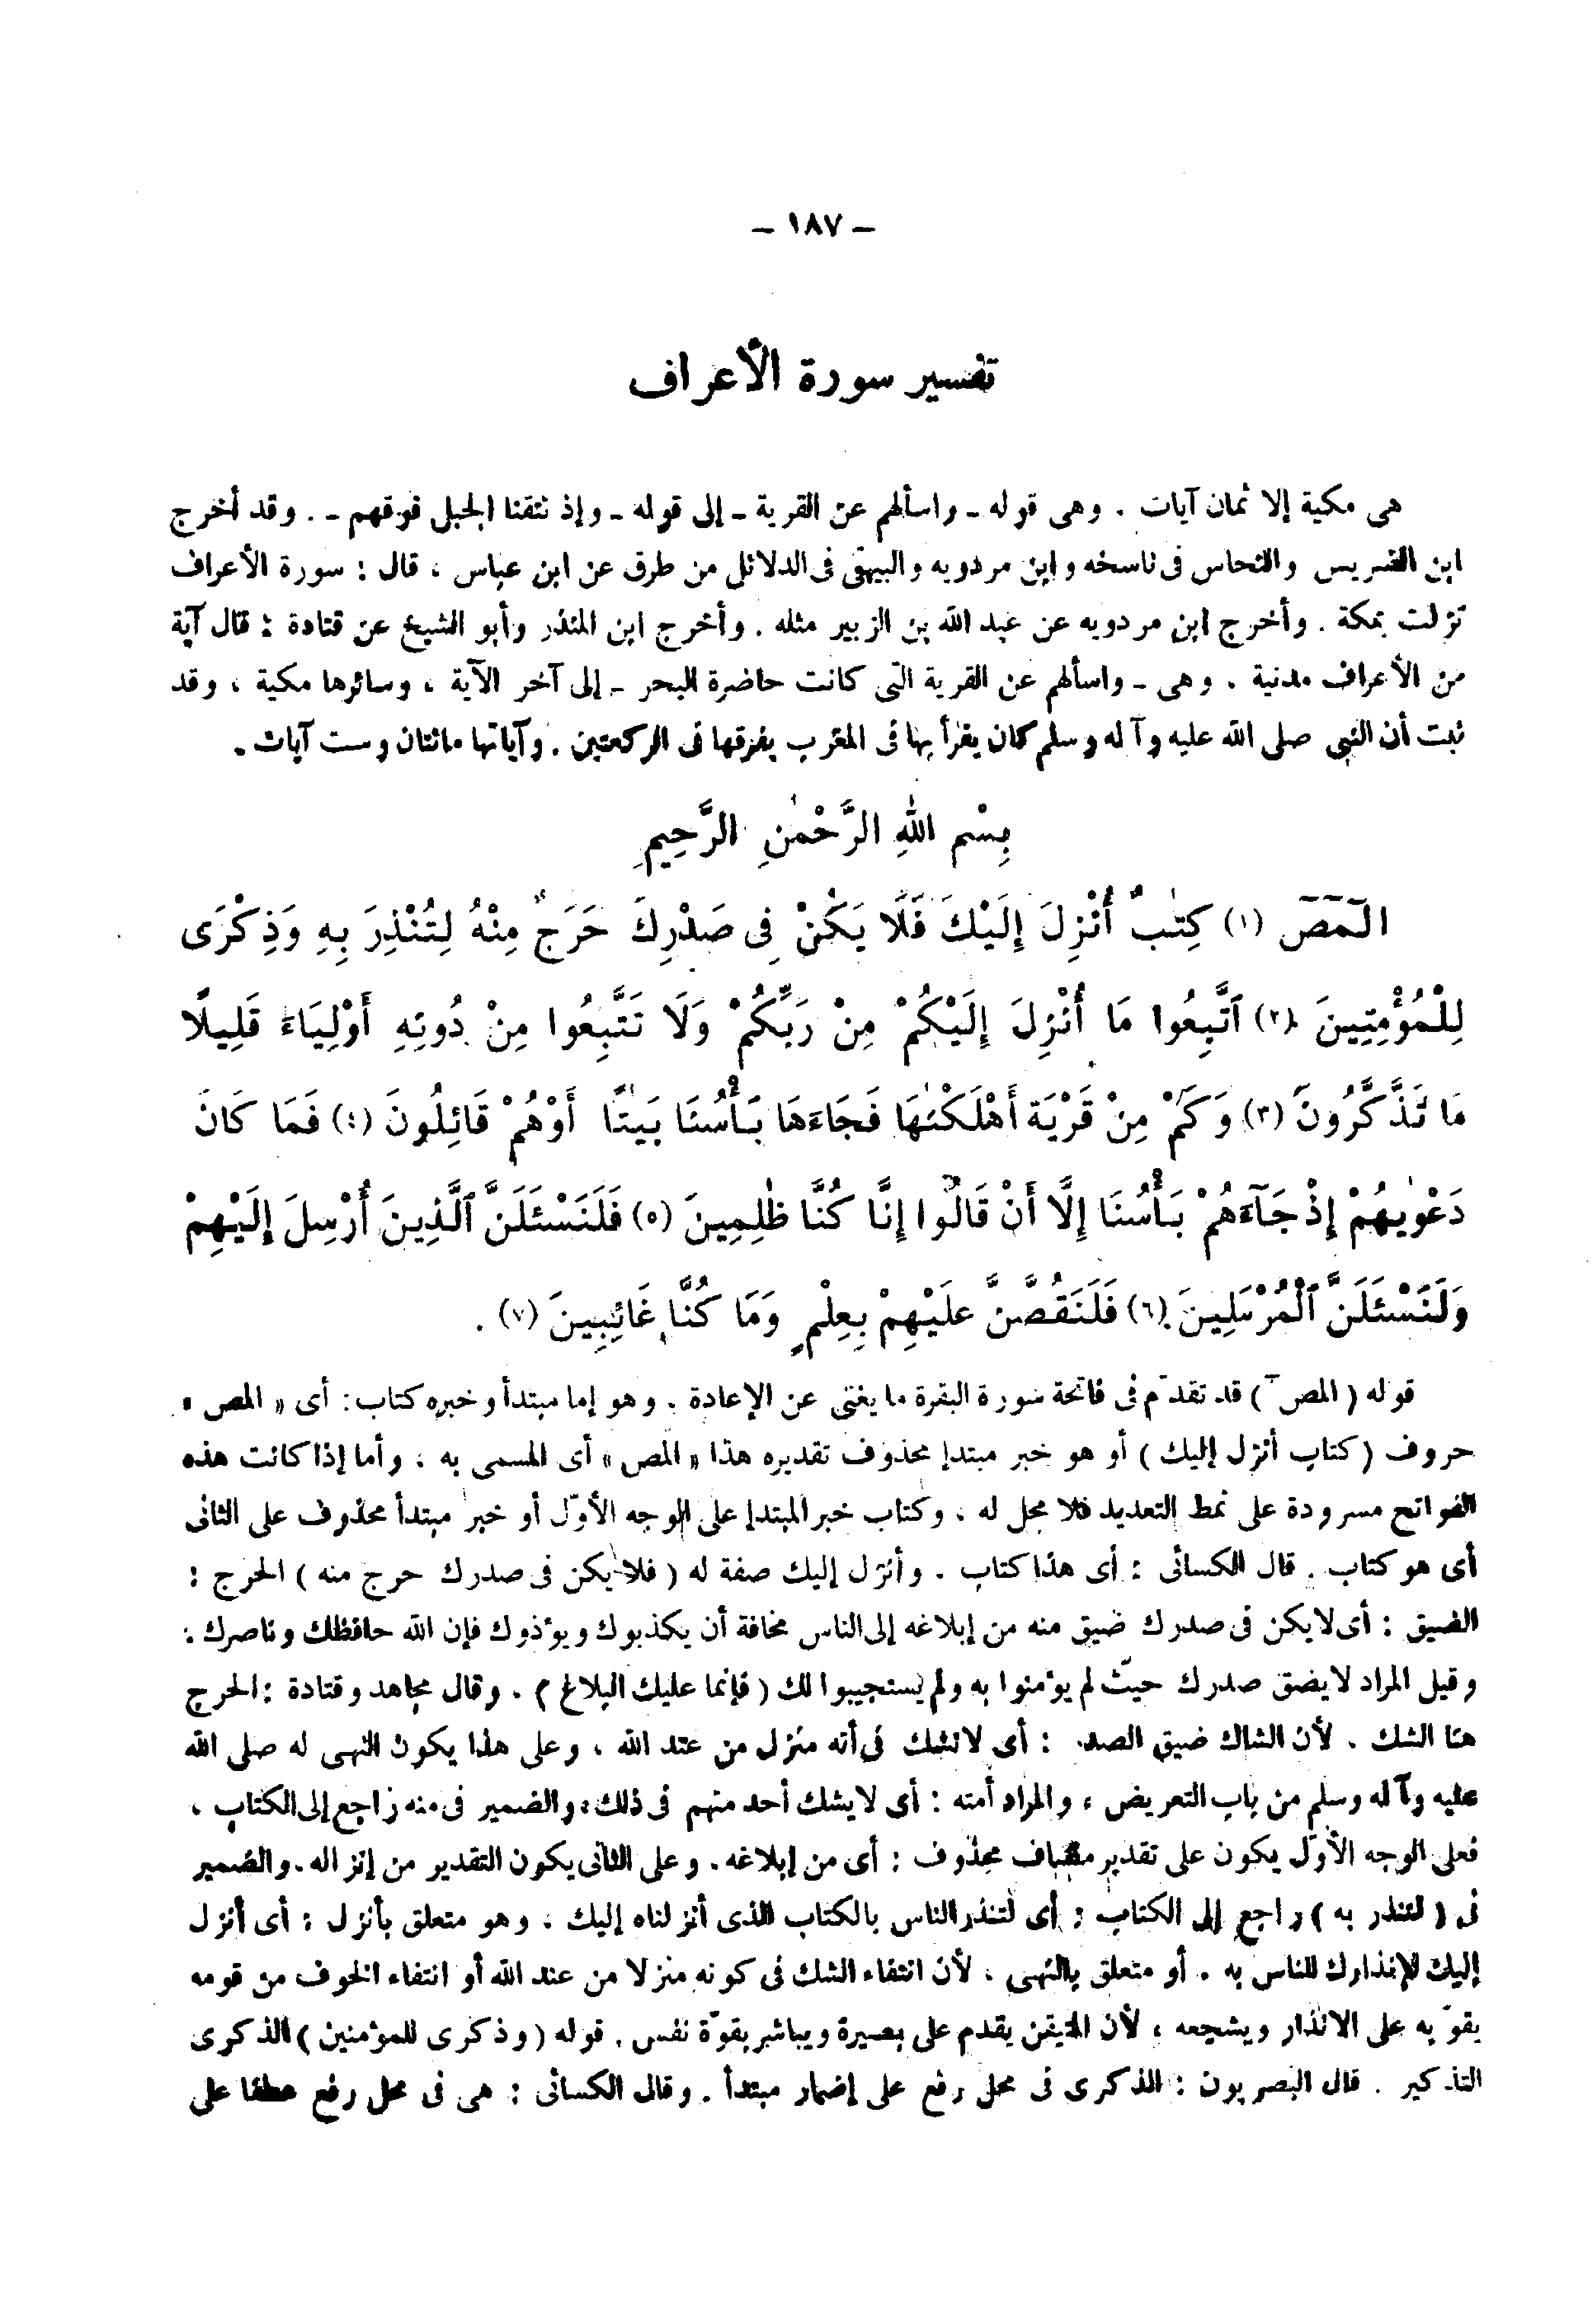 – ١٨٧ –
تفسير سورة الأعراف
هى مكية إلا ثمان آيات . وهى قوله ـ واسألهم عن القرية ـ إلى قوله ـ وإذ نتقنا الجبل فوقهم ـ . وقد أخرج
ابن الضريس والنحاس فى ناسخه وابن مردويه والبيهقى فى الدلائل من طرق عن ابن عباس ، قال : سورة الأعراف
نزلت بمكة . وأخرج ابن مردويه عن عبد الله بن الزبير مثله . وأخرج ابن المنذر وأبو الشيخ عن قتادة : قال آية
من الأعراف مدنية . وهى ـ واسألهم عن القرية التى كانت حاضرة البحر ـ إلى آخر الآية ، وسائرها مكية ، وقد
ثبت أن النبى صلى الله عليه وآله وسلم كان يقرأ بها فى المغرب يفرقها فى الركعتين . وآياتها مائتان وست آيات .
بِسْمِ اللهِ الرَّحْمٰنِ الرَّحِيمِ
الٓمٓصٓ (١) كِتٰبٌ أُنْزِلَ إِلَيْكَ فَلَا يَكُنْ فِى صَدْرِكَ حَرَجٌ مِنْهُ لِتُنْذِرَ بِهِ وَذِكْرَى
لِلْمُؤْمِنِينَ (٢) ٱتَّبِعُوا مَا أُنْزِلَ إِلَيْكُمْ مِنْ رَبِّكُمْ وَلَا تَتَّبِعُوا مِنْ دُونِهِ أَوْلِيَاءَ قَلِيلًا
مَا تَذَّكَّرُونَ (٣) وَكَمْ مِنْ قَرْيَةٍ أَهْلَكْنٰهَا فَجَاءَهَا بَأْسُنَا بَيٰتًا أَوْهُمْ قَائِلُونَ (٤) فَمَا كَانَ
دَعْوٰيهُمْ إِذْ جَآءَهُمْ بَأْسُنَا إِلَّا أَنْ قَالُوا إِنَّا كُنَّا ظٰلِمِينَ (٥) فَلَنَسْئَلَنَّ ٱلَّذِينَ أُرْسِلَ إِلَيْهِمْ
وَلَنَسْئَلَنَّ ٱلْمُرْسَلِينَ (٦) فَلَنَقُصَّنَّ عَلَيْهِمْ بِعِلْمٍ وَمَا كُنَّا غَائِبِينَ (٧) .
قوله ( المصٓ ) قد تقدّم فى فاتحة سورة البقرة ما يغنى عن الإعادة . وهو إما مبتدأ وخبره كتاب : أى « المص »
حروف ( كتاب أنزل إليك ) أو هو خبر مبتدإ محذوف تقديره هذا « المص » أى المسمى به ، وأما إذا كانت هذه
الفواتح مسرودة على نمط التعديد فلا محل له ، وكتاب خبر المبتدإ على الوجه الأوّل أو خبر مبتدأ محذوف على الثانى
أى هو كتاب . قال الكسائى : أى هذا كتاب . وأنزل إليك صفة له ( فلا يكن فى صدرك حرج منه ) الحرج :
الضيق : أى لا يكن فى صدرك ضيق منه من إبلاغه إلى الناس مخافة أن يكذبوك ويؤذوك فإن الله حافظك وناصرك :
وقيل المراد لا يضق صدرك حيث لم يؤمنوا به ولم يستجيبوا لك ( فإنما عليك البلاغ ) . وقال مجاهد وقتادة : الحرج
هنا الشك . لأن الشاك ضيق الصد : أى لا تشك فى أنه منزل من عند الله ، وعلى هذا يكون النهى له صلى الله
عليه وآله وسلم من باب التعريض ، والمراد أمته : أى لا يشك أحد منهم فى ذلك ، والضمير فى منه راجع إلى الكتاب ،
فعلى الوجه الأوّل يكون على تقدير مضاف محذوف : أى من إبلاغه . وعلى الثانى يكون التقدير من إنزاله . والضمير
فى ( لتنذر به ) راجع إلى الكتاب : أى لتنذر الناس بالكتاب الذى أنزلناه إليك ، وهو متعلق بأنزل : أى أنزل
إليك لإنذارك للناس به . أو متعلق بالنهى ، لأن انتفاء الشك فى كونه منزلا من عند الله أو انتفاء الخوف من قومه
يقوّيه على الانذار ويشجعه ، لأن المتيقن يقدم على بصيرة ويباشر بقوّة نفس . قوله ( وذكرى للمؤمنين ) الذكرى
التذكير . قال البصريون : الذكرى فى محل رفع على إضمار مبتدأ . وقال الكسائى : هى فى محل رفع عطفا على